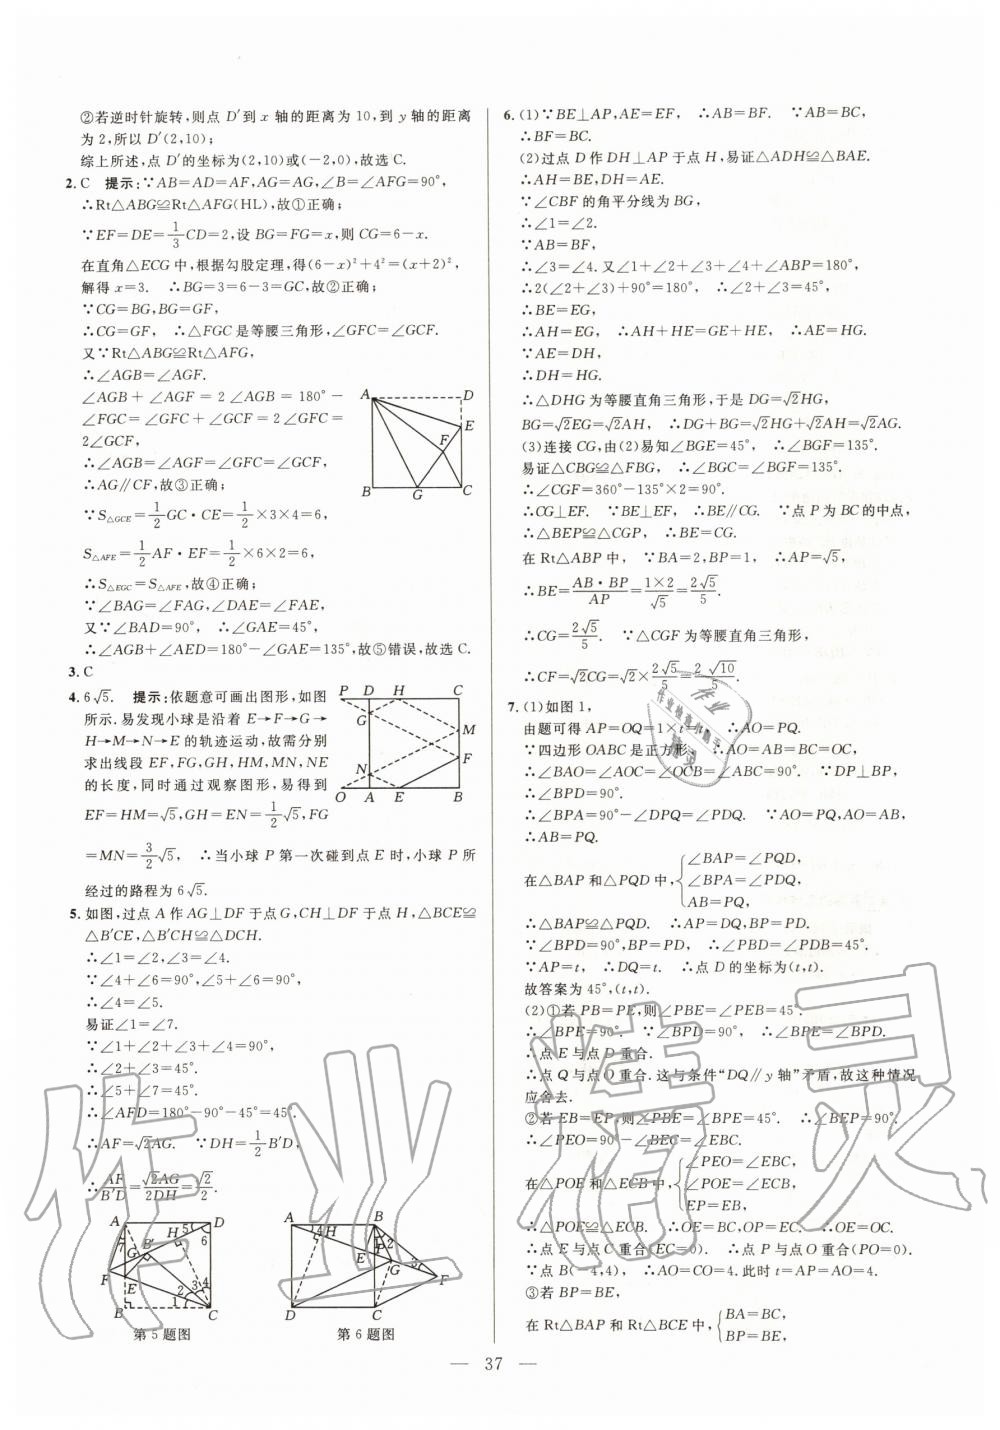 ②若逆时针旋转,则点 D′到 x 轴的距离为 10,到 y 轴的距离
为 2,所以 D′(2,10);
综上所述,点 D′的坐标为(2,10)或(-2,0),故选 C.
2. C 提示:∵AB=AD=AF,AG=AG,∠B=∠AFG=90°,
∴Rt△ABG≌Rt△AFG(HL),故①正确;
∵EF=DE=1/3CD=2,设 BG=FG=x,则 CG=6-x.
在直角△ECG 中,根据勾股定理,得(6-x)²+4²=(x+2)²,
解得 x=3. ∴BG=3=6-3=GC,故②正确;
∵CG=BG,BG=GF,
∴CG=GF, ∴△FGC 是等腰三角形,∠GFC=∠GCF.
又∵Rt△ABG≌Rt△AFG,
∴∠AGB=∠AGF.
∠AGB+∠AGF=2∠AGB=180°-
∠FGC=∠GFC+∠GCF=2∠GFC=
2∠GCF,
∴∠AGB=∠AGF=∠GFC=∠GCF.
∴AG∥CF,故③正确;
∵S△GCE=1/2GC·CE=1/2×3×4=6,
S△AFE=1/2AF·EF=1/2×6×2=6,
∴S△EGC=S△AFE,故④正确;
∵∠BAG=∠FAG,∠DAE=∠FAE,
又∵∠BAD=90°, ∴∠GAE=45°,
∴∠AGB+∠AED=180°-∠GAE=135°,故⑤错误,故选 C.
A D E F B G C
3. C
4. 6√5. 提示:依题意可画出图形,如图
所示.易发现小球是沿着 E→F→G→
H→M→N→E 的轨迹运动,故需分别
求出线段 EF,FG,GH,HM,MN,NE
的长度,同时通过观察图形,易得到
EF=HM=√5,GH=EN=1/2√5,FG
=MN=3/2√5, ∴当小球 P 第一次碰到点 E 时,小球 P 所
经过的路程为 6√5.
P D H C G M F N O A E B
5. 如图,过点 A 作 AG⊥DF 于点 G,CH⊥DF 于点 H,△BCE≌
△B′CE,△B′CH≌△DCH.
∴∠1=∠2,∠3=∠4.
∵∠4+∠6=90°,∠5+∠6=90°,
∴∠4=∠5.
易证∠1=∠7.
∵∠1+∠2+∠3+∠4=90°,
∴∠2+∠3=45°.
∴∠5+∠7=45°.
∴∠AFD=180°-90°-45°=45°.
∴AF=√2AG. ∵DH=1/2B′D,
∴AF/B′D=√2AG/2DH=√2/2.
A H 5 D 7 G B′ 6 F E 2 3 4 B 1 C
第 5 题图
A 4 H B P G F D C
第 6 题图
6. (1)∵BE⊥AP,AE=EF, ∴AB=BF. ∵AB=BC,
∴BF=BC.
(2)过点 D 作 DH⊥AP 于点 H,易证△ADH≌△BAE.
∴AH=BE,DH=AE.
∵∠CBF 的角平分线为 BG,
∴∠1=∠2.
∵AB=BF,
∴∠3=∠4.又∠1+∠2+∠3+∠4+∠ABP=180°,
∴2(∠2+∠3)+90°=180°, ∴∠2+∠3=45°.
∴BE=EG,
∴AH=EG, ∴AH+HE=GE+HE, ∴AE=HG.
∵AE=DH,
∴DH=HG.
∴△DHG 为等腰直角三角形,于是 DG=√2HG,
BG=√2EG=√2AH, ∴DG+BG=√2HG+√2AH=√2AG.
(3)连接 CG,由(2)易知∠BGE=45°, ∴∠BGF=135°.
易证△CBG≌△FBG, ∴∠BGC=∠BGF=135°.
∴∠CGF=360°-135°×2=90°.
∴CG⊥EF. ∵BE⊥EF, ∴BE∥CG. ∵点 P 为 BC 的中点,
∴△BEP≌△CGP, ∴BE=CG.
在 Rt△ABP 中, ∵BA=2,BP=1, ∴AP=√5,
∴BE=AB·BP/AP=1×2/√5=2√5/5.
∴CG=2√5/5. ∵△CGF 为等腰直角三角形,
∴CF=√2CG=√2×2√5/5=2√10/5.
7. (1)如图 1,
由题可得 AP=OQ=1×t=t, ∴AO=PQ.
∵四边形 OABC 是正方形, ∴AO=AB=BC=OC,
∴∠BAO=∠AOC=∠OCB=∠ABC=90°. ∵DP⊥BP,
∴∠BPD=90°.
∴∠BPA=90°-∠DPQ=∠PDQ. ∵AO=PQ,AO=AB,
∴AB=PQ.
在△BAP 和△PQD 中,{∠BAP=∠PQD,
∠BPA=∠PDQ,
AB=PQ,
∴△BAP≌△PQD. ∴AP=DQ,BP=PD.
∵∠BPD=90°,BP=PD, ∴∠PBD=∠PDB=45°.
∵AP=t, ∴DQ=t. ∴点 D 的坐标为(t,t).
故答案为 45°,(t,t).
(2)①若 PB=PE,则∠PBE=∠PEB=45°.
∴∠BPE=90°. ∵∠BPD=90°, ∴∠BPE=∠BPD.
∴点 E 与点 D 重合.
∴点 Q 与点 O 重合.这与条件“DQ∥y 轴”矛盾,故这种情况
应舍去.
②若 EB=EP,则∠PBE=∠BPE=45°. ∴∠BEP=90°.
∴∠PEO=90°-∠BEC=∠EBC.
在△POE 和△ECB 中,{∠PEO=∠EBC,
∠POE=∠ECB,
EP=EB,
∴△POE≌△ECB. ∴OE=BC,OP=EC. ∴OE=OC.
∴点 E 与点 C 重合(EC=0). ∴点 P 与点 O 重合(PO=0).
∵点 B(-4,4), ∴AO=CO=4. 此时 t=AP=AO=4.
③若 BP=BE,
在 Rt△BAP 和 Rt△BCE 中,{BA=BC,
BP=BE,
— 37 —
作业精灵